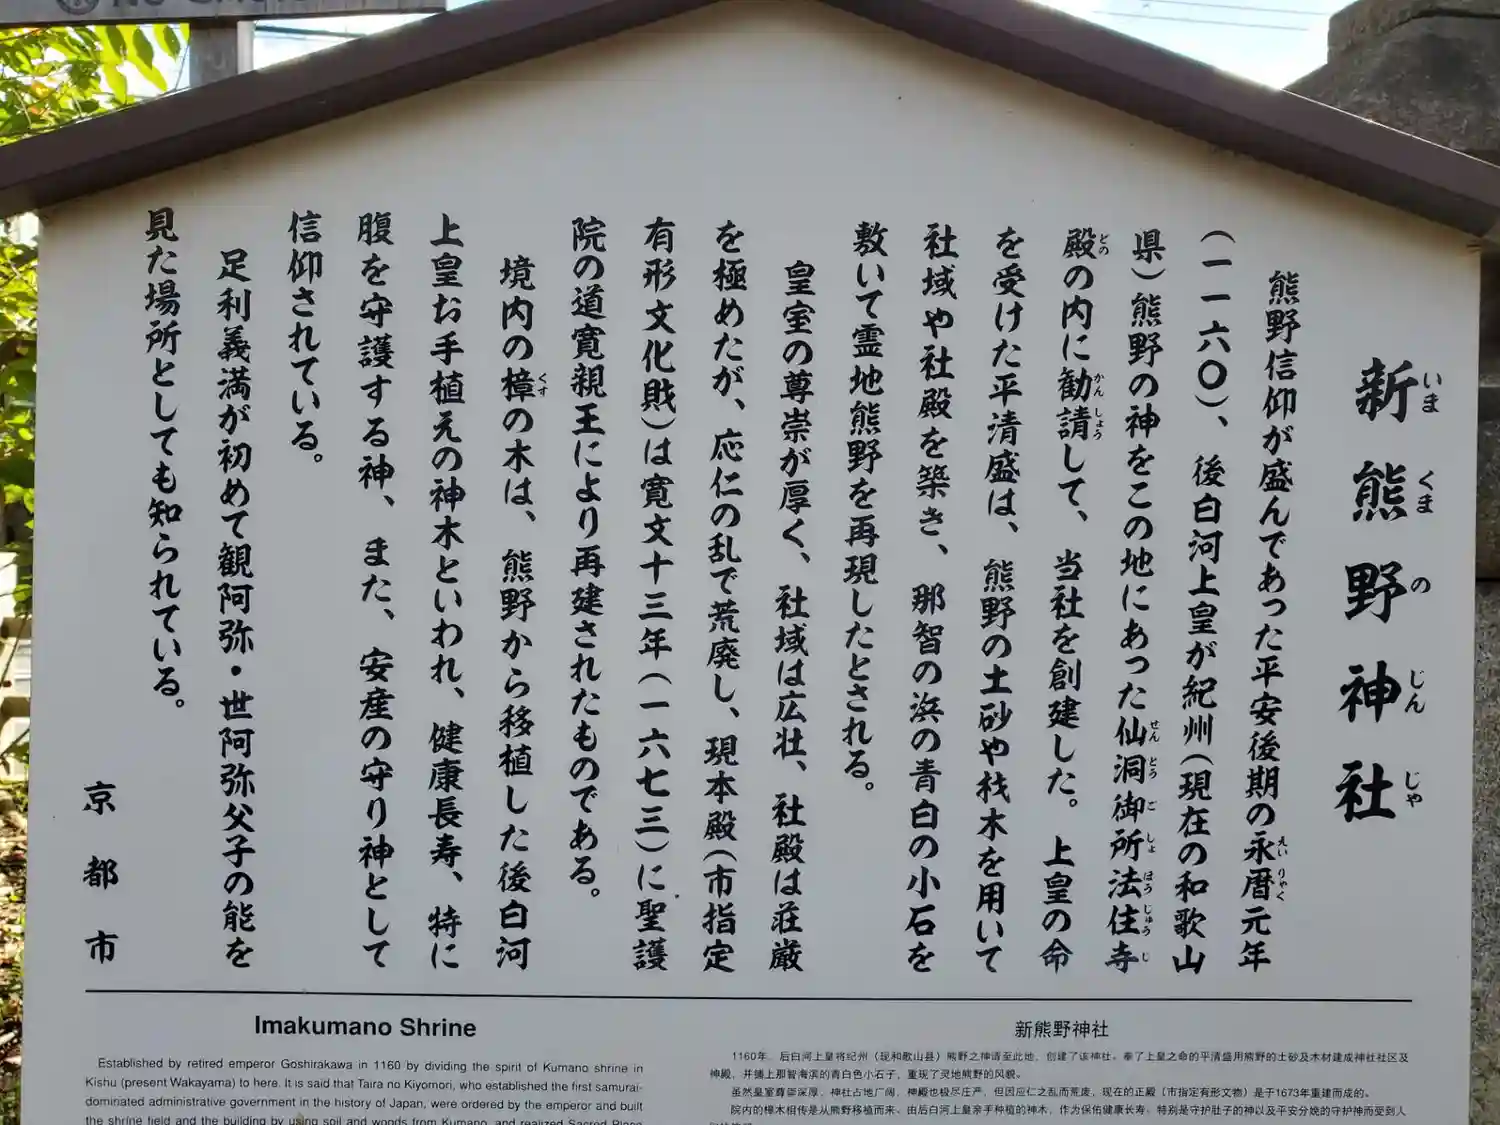 新熊野神社
いま くま の じん じゃ
熊野信仰が盛んであった平安後期の永暦元年
えい りゃく
(一一六〇)、後白河上皇が紀州(現在の和歌山
県)熊野の神をこの地にあった仙洞御所法住寺
せん とう ご しょ ほう じゅう じ
殿の内に勧請して、当社を創建した。上皇の命
どの かん しょう
を受けた平清盛は、熊野の土砂や材木を用いて
社域や社殿を築き、那智の浜の青白の小石を
敷いて霊地熊野を再現したとされる。
皇室の尊崇が厚く、社域は広壮、社殿は荘厳
を極めたが、応仁の乱で荒廃し、現本殿(市指定
有形文化財)は寛文十三年(一六七三)に聖護
院の道寛親王により再建されたものである。
境内の樟の木は、熊野から移植した後白河
くす
上皇お手植えの神木といわれ、健康長寿、特に
腹を守護する神、また、安産の守り神として
信仰されている。
足利義満が初めて観阿弥・世阿弥父子の能を
見た場所としても知られている。
京都市
Imakumano Shrine
Established by retired emperor Goshirakawa in 1160 by dividing the spirit of Kumano shrine in
Kishu (present Wakayama) to here. It is said that Taira no Kiyomori, who established the first samurai-
dominated administrative government in the history of Japan, were ordered by the emperor and built
the shrine field and the building by using soil and woods from Kumano, and realized Sacred Place
新熊野神社
1160年，后白河上皇将纪州（现和歌山县）熊野之神请至此地，创建了该神社。奉了上皇之命的平清盛用熊野的土砂及木材建成神社社区及
神殿，并铺上那智海滨的青白色小石子，重现了灵地熊野的风貌。
虽然皇室尊崇深厚，神社占地广阔，神殿也极尽庄严，但因应仁之乱而荒废，现在的正殿（市指定有形文物）是于1673年重建而成的。
院内的樟木相传是从熊野移植而来、由后白河上皇亲手种植的神木，作为保佑健康长寿，特别是守护肚子的神以及平安分娩的守护神而受到人